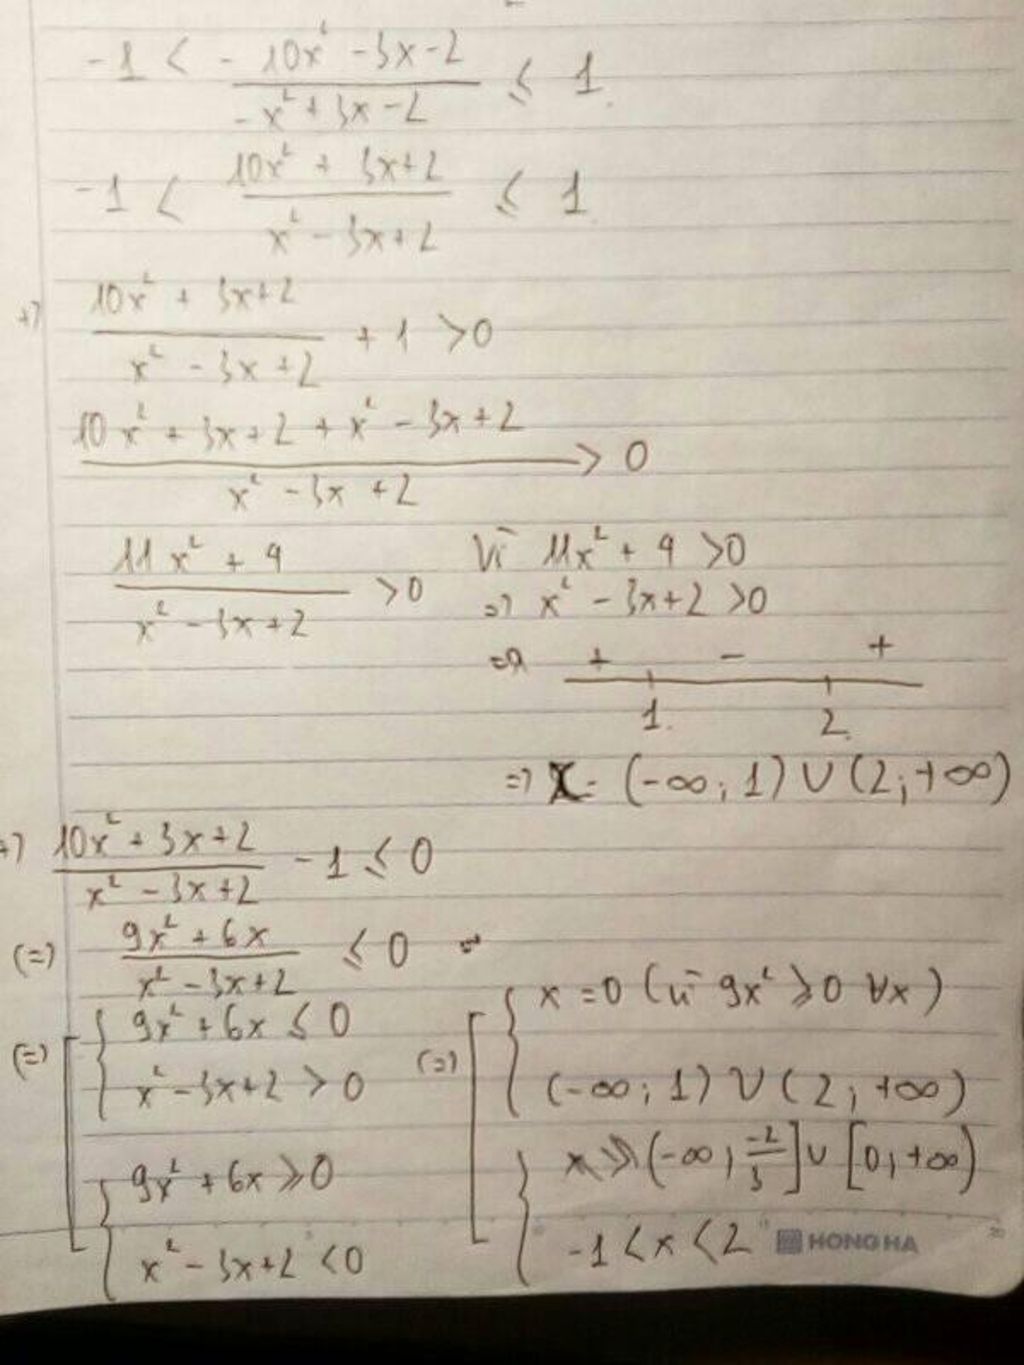 -1 < - (10x² - 3x - 2)/(-x² + 3x - 2) ≤ 1
-1 < (10x² + 3x + 2)/(x² - 3x + 2) ≤ 1
+) (10x² + 3x + 2)/(x² - 3x + 2) + 1 > 0
(10x² + 3x + 2 + x² - 3x + 2)/(x² - 3x + 2) > 0
(11x² + 4)/(x² - 3x + 2) > 0 Vì 11x² + 4 > 0
=> x² - 3x + 2 > 0
=> + - +
1 2
=> x = (-∞; 1) ∪ (2; +∞)
+) (10x² + 3x + 2)/(x² - 3x + 2) - 1 ≤ 0
(=) (9x² + 6x)/(x² - 3x + 2) ≤ 0
(=) [ { 9x² + 6x ≤ 0
x² - 3x + 2 > 0
{ 9x² + 6x ≥ 0
x² - 3x + 2 < 0
(=) [ { x = 0 (vì 9x² ≥ 0 ∀x)
(-∞; 1) ∪ (2; +∞)
{ x ≥ (-∞; -2/3] ∪ [0; +∞)
-1 < x < 2
HONG HA